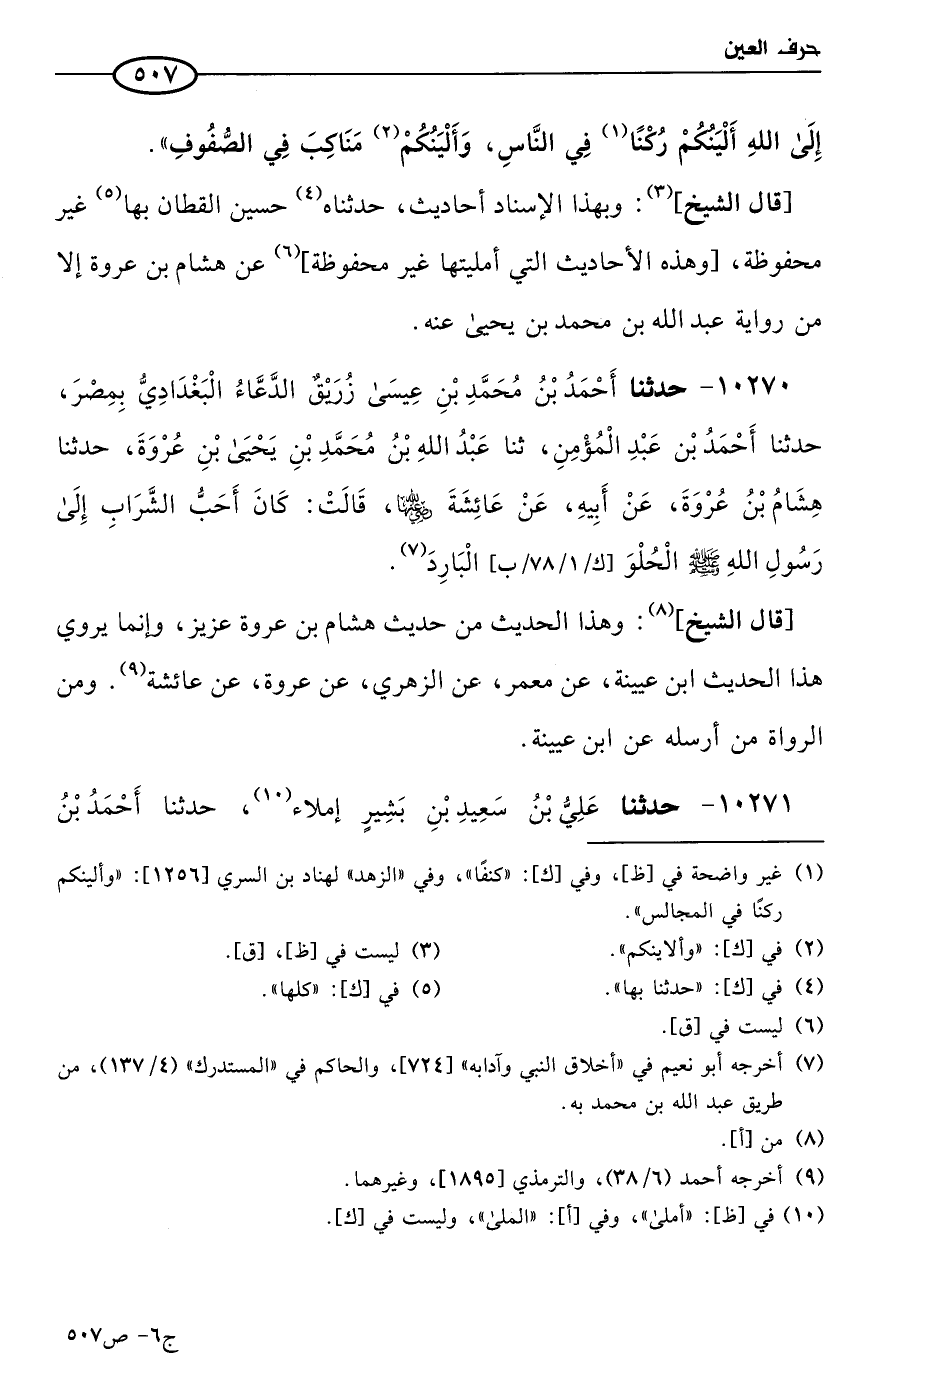 حرف العين
٥٠٧
إِلَىٰ اللهِ أَلْيَنُكُمْ رُكْنًا(١) فِي النَّاسِ، وَأَلْيَنُكُمْ(٢) مَنَاكِبَ فِي الصُّفُوفِ».
[قال الشيخ](٣): وبهذا الإسناد أحاديث، حدثناه(٤) حسين القطان بها(٥) غير
محفوظة، [وهذه الأحاديث التي أمليتها غير محفوظة](٦) عن هشام بن عروة إلا
من رواية عبد الله بن محمد بن يحيىٰ عنه.
١٠٢٧٠- حدثنا أَحْمَدُ بْنُ مُحَمَّدِ بْنِ عِيسَىٰ زُرَيْقٌ الدَّعَّاءُ الْبَغْدَادِيُّ بِمِصْرَ،
حدثنا أَحْمَدُ بْن عَبْدِ الْمُؤْمِنِ، ثنا عَبْدُ اللهِ بْنُ مُحَمَّدِ بْنِ يَحْيَىٰ بْنِ عُرْوَةَ، حدثنا
هِشَامُ بْنُ عُرْوَةَ، عَنْ أَبِيهِ، عَنْ عَائِشَةَ رضي الله عنها، قَالَتْ: كَانَ أَحَبُّ الشَّرَابِ إِلَىٰ
رَسُولِ اللهِ ﷺ الْحُلْوَ [ك/٧٨/١/ب] الْبَارِدَ(٧).
[قال الشيخ](٨): وهذا الحديث من حديث هشام بن عروة عزيز، وإنما يروي
هذا الحديث ابن عيينة، عن معمر، عن الزهري، عن عروة، عن عائشة(٩). ومن
الرواة من أرسله عن ابن عيينة.
١٠٢٧١- حدثنا عَلِيُّ بْنُ سَعِيدِ بْنِ بَشِيرٍ إملاء(١٠)، حدثنا أَحْمَدُ بْنُ
(١) غير واضحة في [ظ]، وفي [ك]: «كنفًا»، وفي «الزهد» لهناد بن السري [١٢٥٦]: «وألينكم
ركنًا في المجالس».
(٢) في [ك]: «وألاينكم». (٣) ليست في [ظ]، [ق].
(٤) في [ك]: «حدثنا بها». (٥) في [ك]: «كلها».
(٦) ليست في [ق].
(٧) أخرجه أبو نعيم في «أخلاق النبي وآدابه» [٧٢٤]، والحاكم في «المستدرك» (١٣٧/٤)، من
طريق عبد الله بن محمد به.
(٨) من [أ].
(٩) أخرجه أحمد (٣٨/٦)، والترمذي [١٨٩٥]، وغيرهما.
(١٠) في [ظ]: «أملىٰ»، وفي [أ]: «الملىٰ»، وليست في [ك].
ج٦- ص٥٠٧